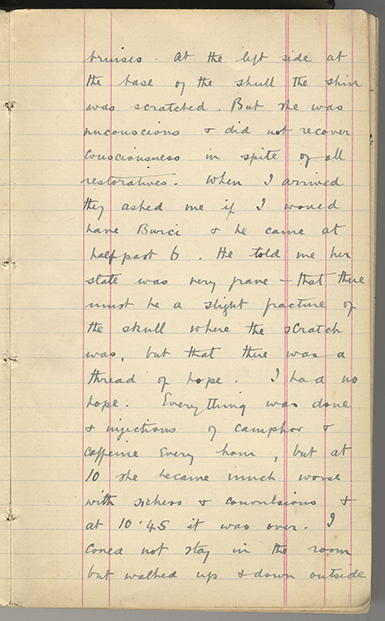 bruises. At the left side at
the base of the skull the skin
was scratched. But she was
unconscious & did not recover
consciousness in spite of all
restoratives. When I arrived
they asked me if I would
have Burci & he came at
half past 6. He told me her
state was very grave – that there
must be a slight fracture of
the skull where the scratch
was, but that there was a
thread of hope. I had no
hope. Everything was done
& injections of camphor &
caffeine every hour, but at
10 she became much worse
with sickness & convulsions &
at 10'45 it was over. I
could not stay in the room
but walked up & down outside